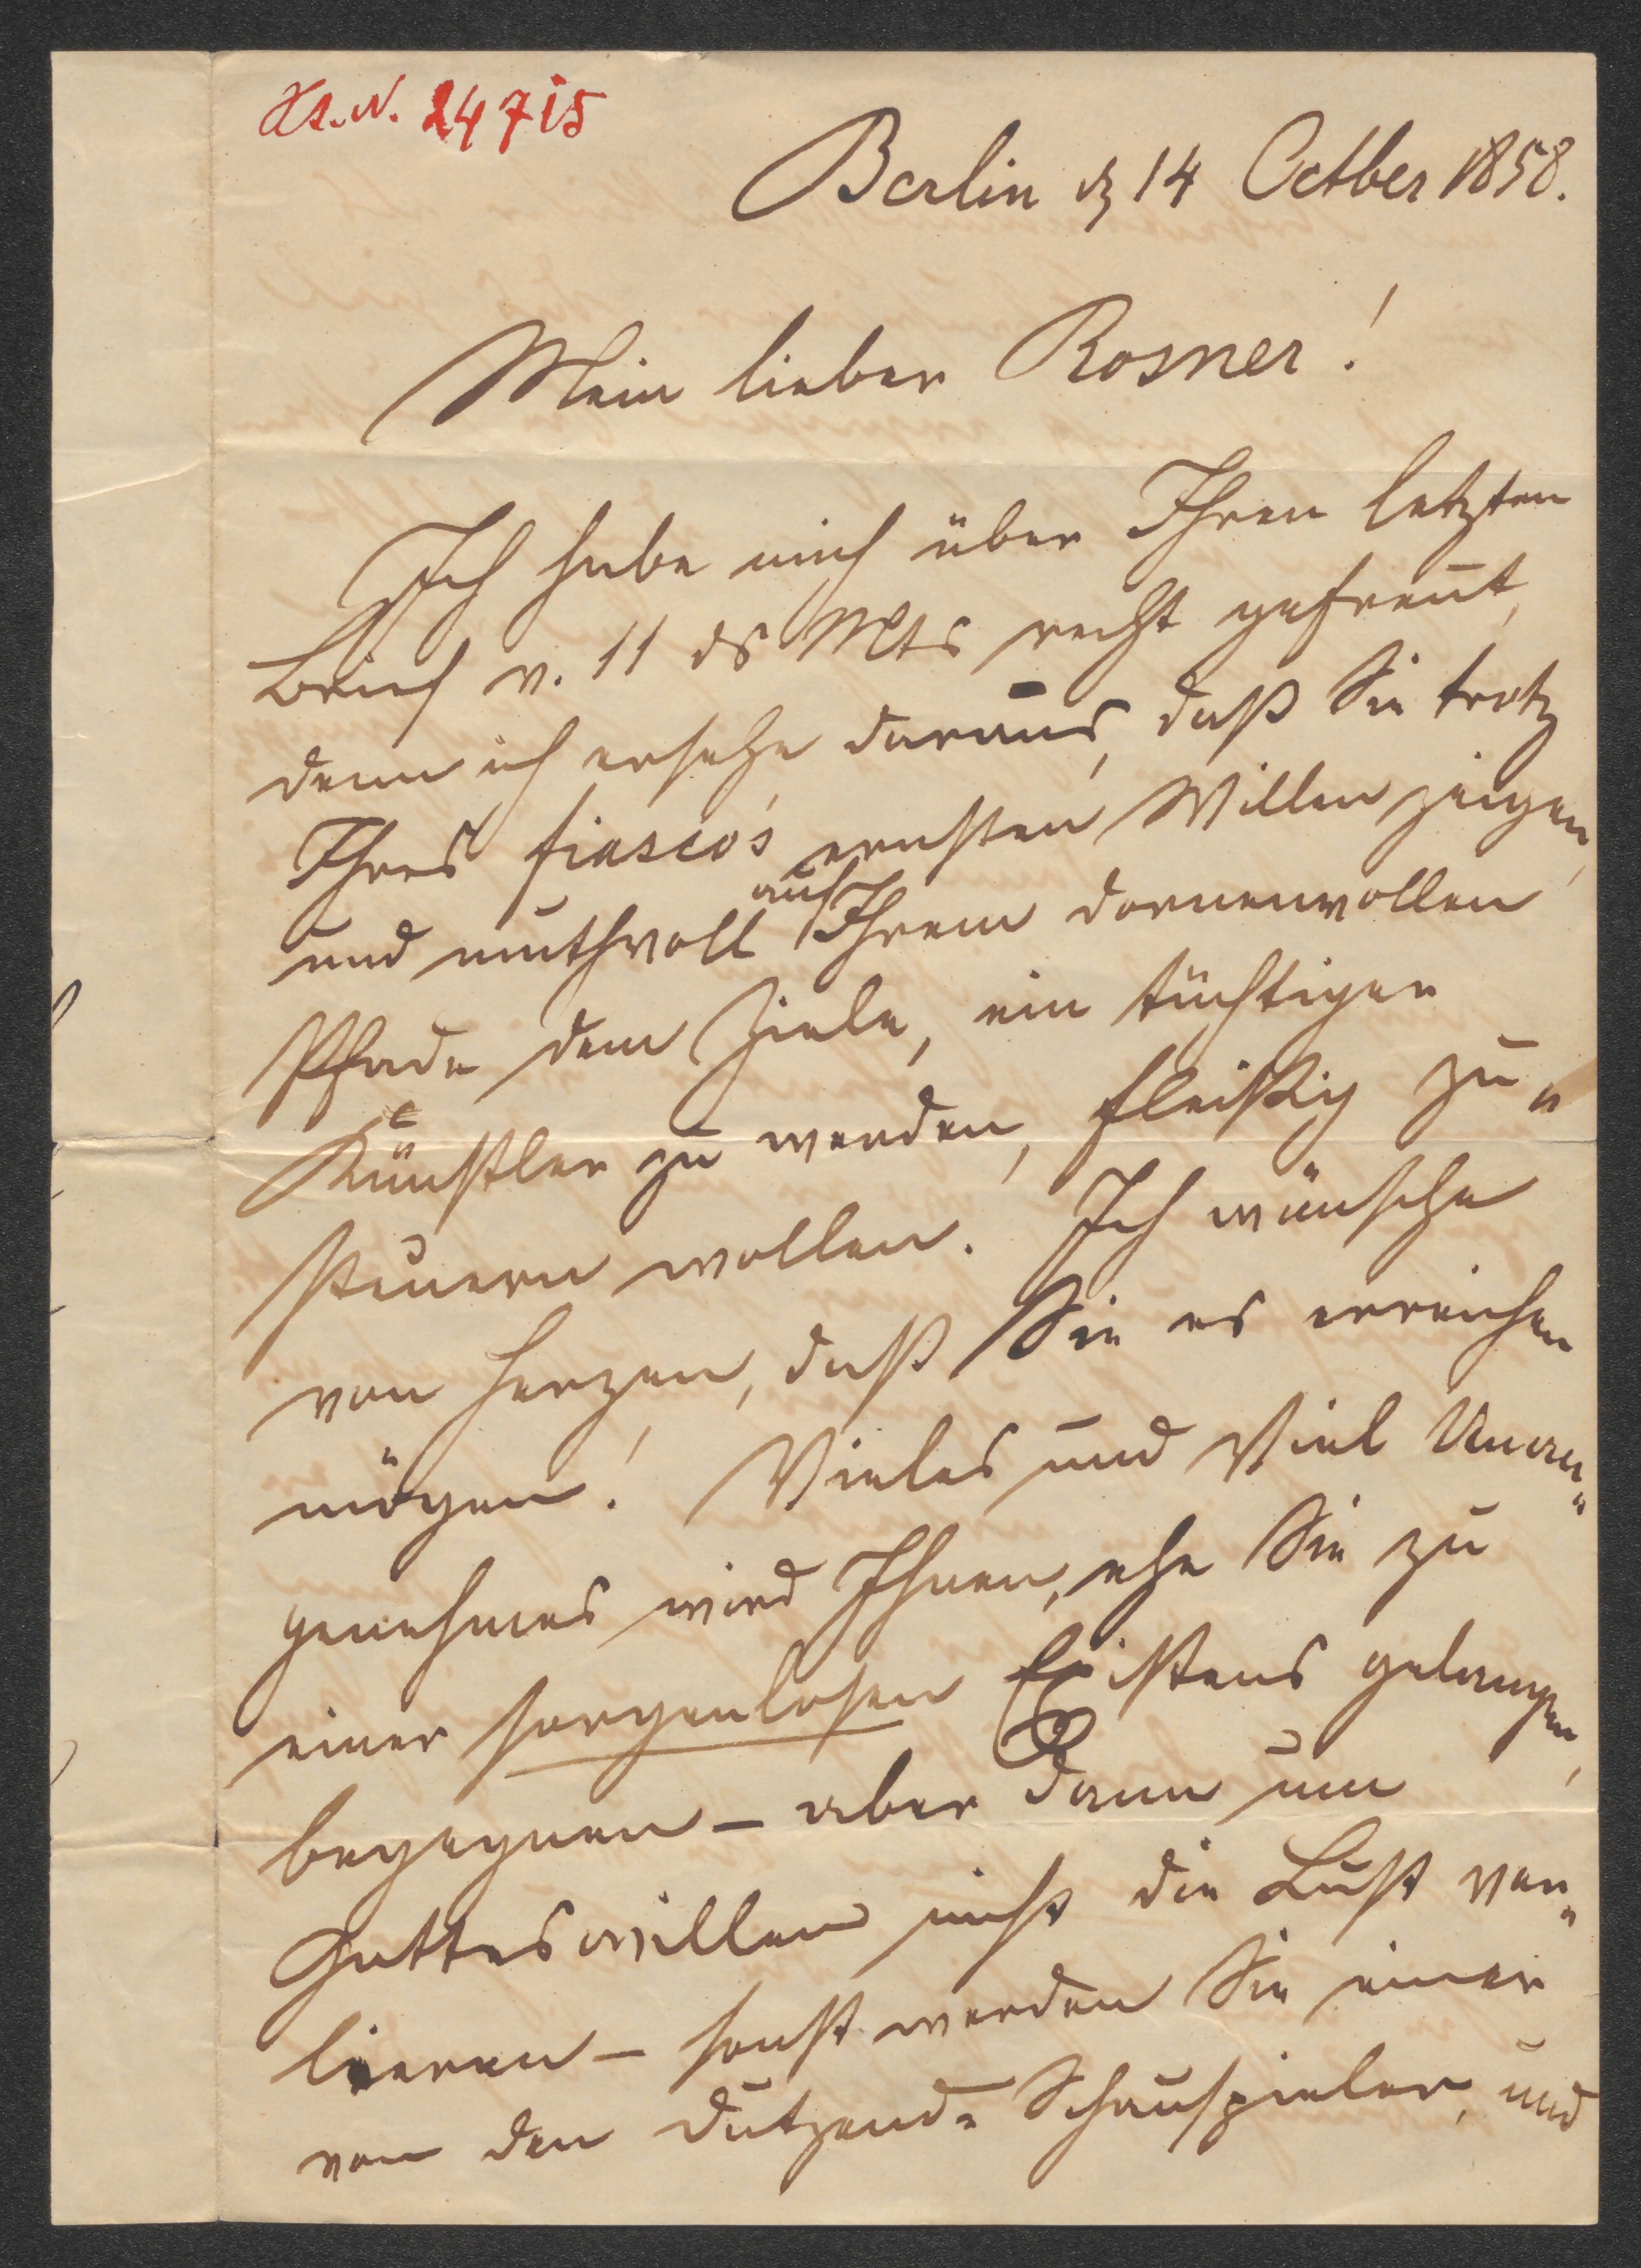 H.I.N. 24715
Berlin d 14 Octber 1858.
Mein lieber Rosner!
Ich habe mich über Ihren letzten
Brief v. 11 ds Mts recht gefreut,
denn ich ersehe daraus, daß Sie trotz
Ihres fiasco's ernsten Willen zeigen,
und muthvoll auf Ihrem dornenvollen
Pfade dem Ziele, ein tüchtiger
Künstler zu werden, fleißig zu„
steuern wollen. Ich wünsche
von Herzen, daß Sie es erreichen
mögen! Vieles und Viel Unan„
genehmes wird Ihnen, ehe Sie zu
einer sorgenlosen Existens gelangen,
begegnen – aber dann um
Gotteswillen nicht die Lust ver„
lieren – sonst werden Sie einer
von den Dutzend- Schauspieler, und